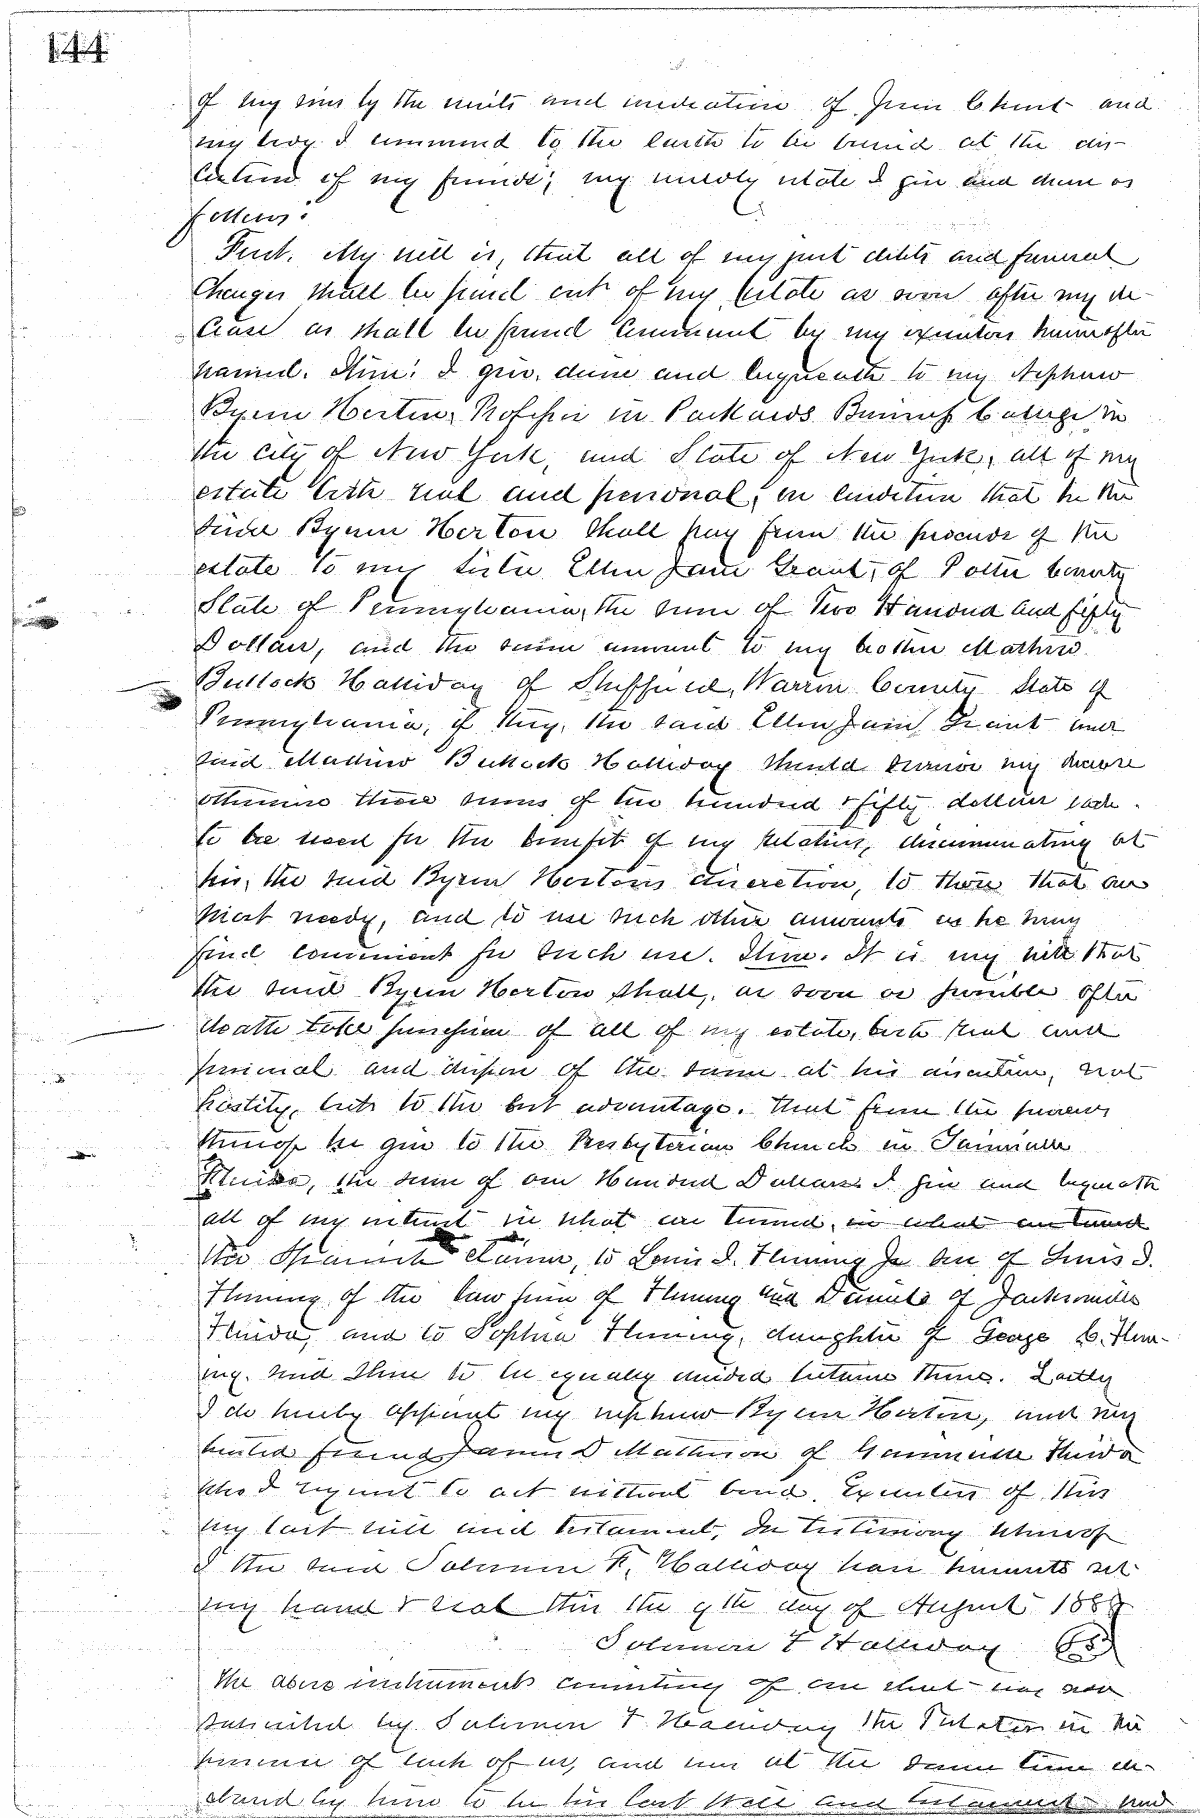 144
of my sins by the merits and mediation of Jesus Christ and
my body I commend to the Earth to be buried at the dis-
cretion of my friends; my worldly estate I give and devise as
follows:
First. My will is, that all of my just debts and funeral
Charges shall be paid out of my estate as soon after my de-
cease as shall be found convenient by my executors hereinafter
named. Item: I give, devise and bequeath to my Nephew
Byron Horton, Professor in Packards Business College in
the city of New York, and State of New York, all of my
estate both real and personal, on condition that he the
said Byron Horton shall pay from the proceeds of the
estate to my sister Ellen Jane Grant, of Potter County
State of Pennsylvania, the sum of Two Hundred and fifty
Dollars, and the same amount to my brother Mathew
Bullock Halliday of Sheffield, Warren County State of
Pennsylvania, if they, the said Ellen Jane Grant and
said Mathew Bullock Halliday should survive my decease
otherwise these sums of two hundred & fifty dollars each
to be used for the benefit of my relatives, discriminating at
his, the said Byron Horton's discretion, to those that are
most needy, and to use such other amounts as he may
find convenient for such use. Item. It is my will that
the said Byron Horton shall, as soon as possible after
death take possession of all of my estate, both real and
personal and dispose of the same at his discretion, not
hastily, but to the best advantage. That from the proceeds
thereof he give to the Presbyterian Church in Gainesville
Florida, the sum of one Hundred Dollars I give and bequeath
all of my interest in what are termed, in what are termed
the Spanish claims, to Louis I. Fleming Jr son of Louis I.
Fleming of the law firm of Fleming and Daniels of Jacksonville
Florida, and to Sophia Fleming, daughter of George C. Flem-
ing. said Item to be equally divided between them. Lastly
I do hereby appoint my nephew Byron Horton, and my
trusted friend James D Matheson of Gainesville Florida
who I request to act without bond. Executors of this
my last will and testament, In testimony whereof
I the said Solomon F. Halliday have hereunto set
my hand & seal this the 9th day of August 188
Solomon F Halliday
The above instrument consisting of one sheet was now
subscribed by Solomon F Halliday the Testator in the
presence of each of us, and was at the same time de-
clared by him to be his last Will and testament and